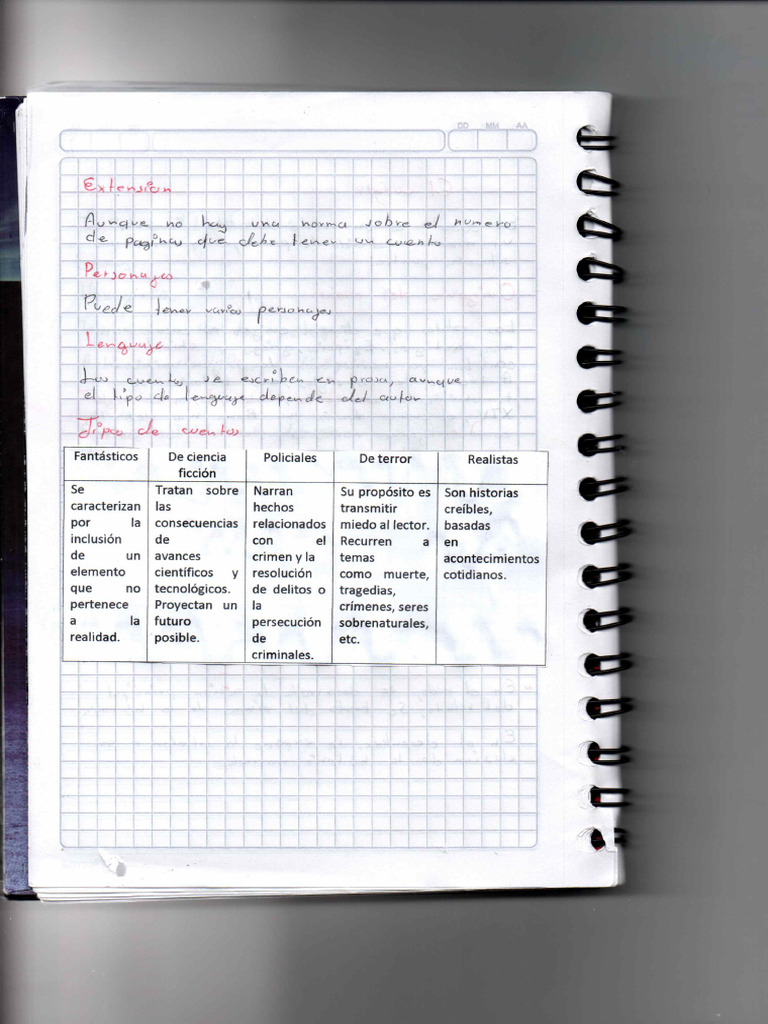 DD MM AA
Extension
Aunque no hay una norma sobre el numero
de paginas que debe tener un cuento
Personajes
Puede tener varios personajes
Lenguaje
Los cuentos se escriben en prosa, aunque
el tipo de lenguaje depende del autor
Tipos de cuentos
Fantásticos
De ciencia
ficción
Policiales
De terror
Realistas
Se
caracterizan
por la
inclusión
de un
elemento
que no
pertenece
a la
realidad.
Tratan sobre
las
consecuencias
de
avances
científicos y
tecnológicos.
Proyectan un
futuro
posible.
Narran
hechos
relacionados
con el
crimen y la
resolución
de delitos o
la
persecución
de
criminales.
Su propósito es
transmitir
miedo al lector.
Recurren a
temas
como muerte,
tragedias,
crímenes, seres
sobrenaturales,
etc.
Son historias
creíbles,
basadas
en
acontecimientos
cotidianos.